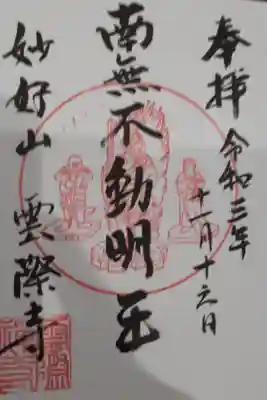 奉拝 令和三年
十一月十六日
南無不動明王
妙好山 雲際寺